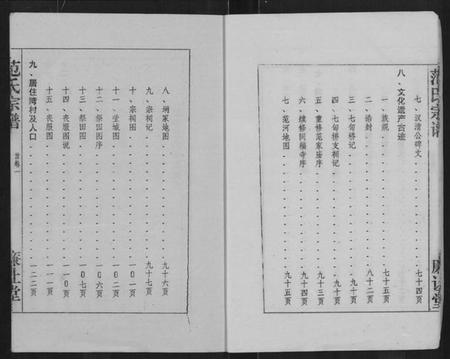 范氏宗谱
八、汉清公碑文........七十四页
八、文化遗产古迹
一、族规........七十五页
二、诰封........八十二页
三、七甸修记........九十页
四、七甸修支祠记........九十页
五、重修范家庙序........九十三页
六、续修回福寺序........九十五页
七、范河地图........九十五页
八、祠冢地图........九十六页
九、宗祠记........九十七页
十、宗祠图........一〇一页
十一、茔城图........一〇二页
十二、祭田图序........一〇六页
十三、祭田图........一〇七页
十四、丧服图说........一一〇页
十五、丧服图........一一一页
九、居住湾村及人口........一二二页
范氏宗谱
首卷一